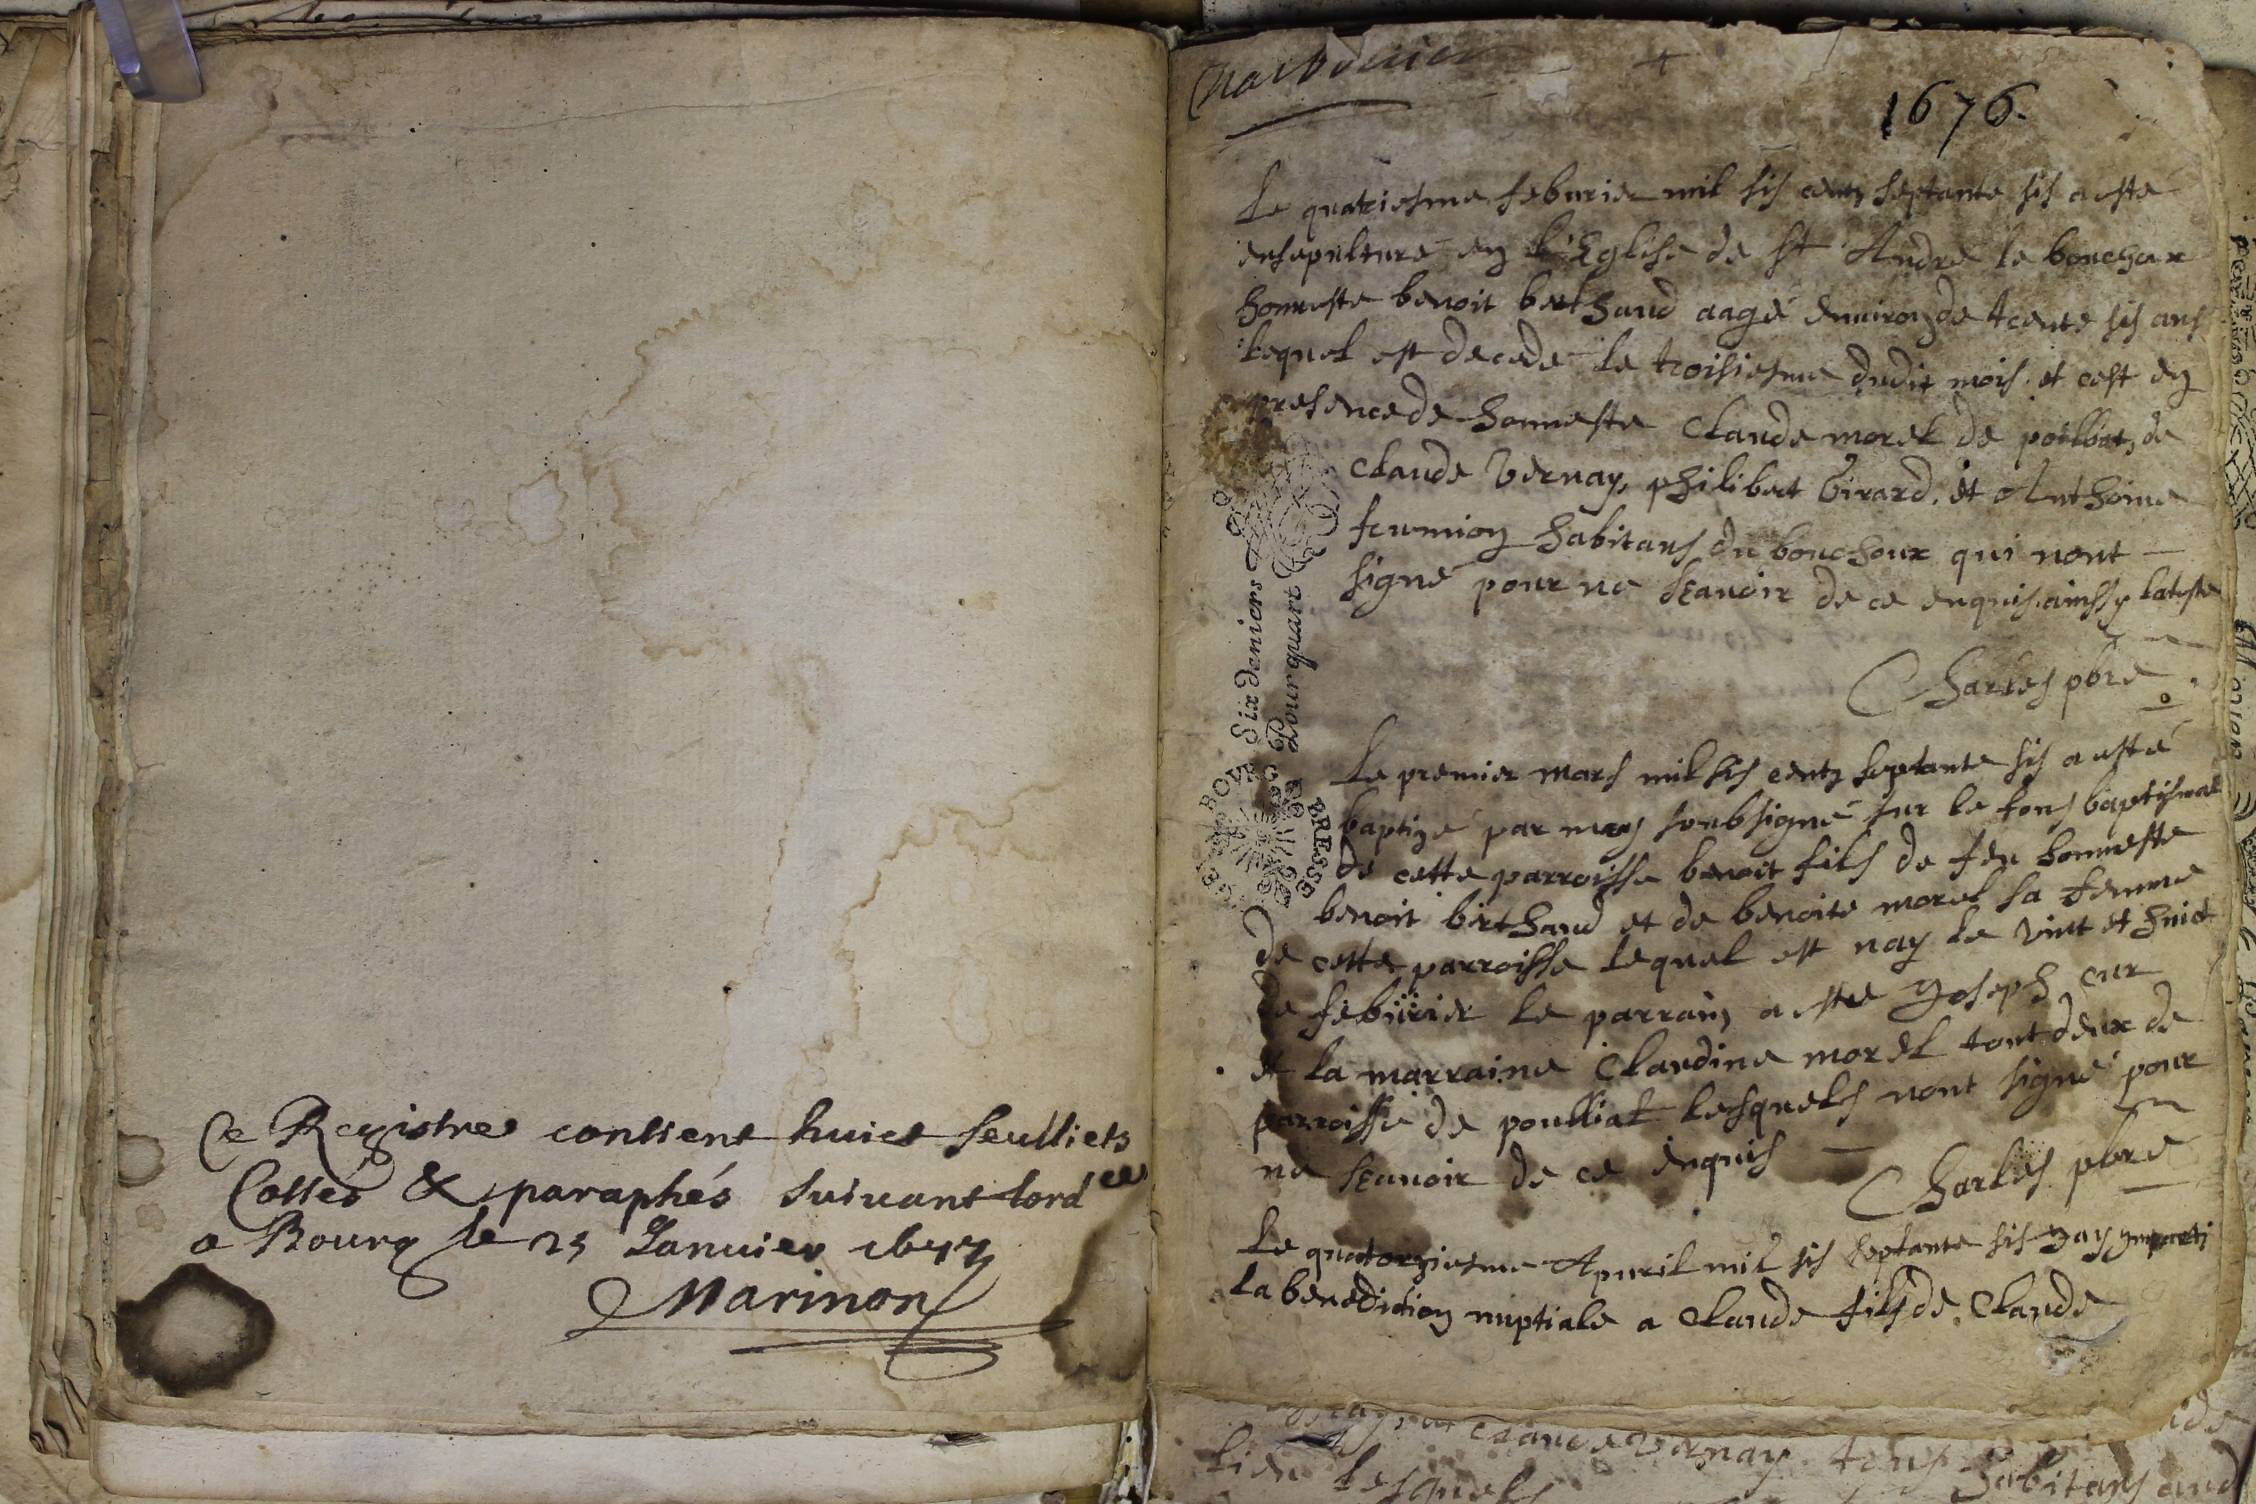 Ce Registre contient huict feulliets
Cottés & paraphés suivant lord ce
a Bourg le 25 Januier 1677
Marinon
1676.
Le quatriesme feburier mil sis centz septante sis a esté
ensepulturé en l'Eglise de st André le bouchoux
honneste benoit berthaud aagé enuiron de trente sis ans
lequel est decede le troisiesme dudit mois et cest en
presence de honneste Claude morel de de
Claude Vernay, philibert Girard, et Anthoine
habitans du bouchoux qui nont
signé pour ne scauoir de ce enquis ainssy latteste
Charles pbre
Six deniers
Pour quart
GEN BOVRG BRESSE
Le premier mars mil sis centz septante sis a esté
baptizé par moy soubsigné sur le fons baptismal
de cette parroisse benoit fils de feu honneste
benoit berthaud et de benoite morel sa femme
de cette parroisse lequel est nay le vint et huict
de feburier le parrain a esté Joseph cur
et la marraine Claudine morel tout deux de
parroisse de poulliat lesquels nont signé pour
ne scauoir de ce enquis
Charles pbre
Le quatorziesme Apuril mil sis septante sis jay imparti
la benediction nuptiale a Claude fils de Claude
Claude Vernay tous
lieu lesquels habitans aud